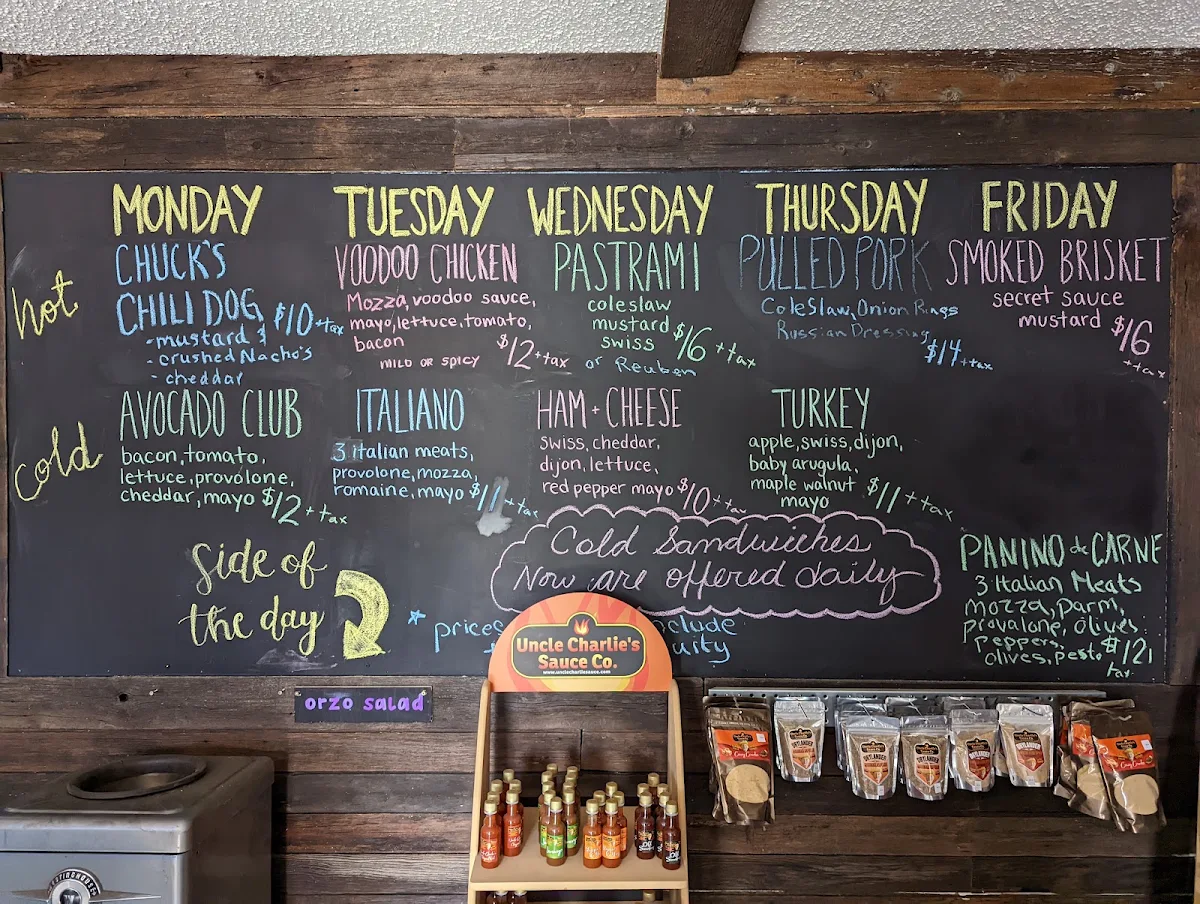 MONDAY
TUESDAY
WEDNESDAY
THURSDAY
FRIDAY
hot
CHUCK'S
CHILI DOG $10+tax
- mustard &
- crushed Nacho's
- cheddar
VOODOO CHICKEN
Mozza, voodoo sauce,
mayo, lettuce, tomato,
bacon
MILD OR SPICY $12+tax
PASTRAMI
coleslaw
mustard
swiss $16 + tax
or Reuben
PULLED PORK
Coleslaw, Onion Rings
Russian Dressing
$14+tax
SMOKED BRISKET
secret sauce
mustard $16
+tax
cold
AVOCADO CLUB
bacon, tomato,
lettuce, provolone,
cheddar, mayo $12 + tax
ITALIANO
3 italian meats,
provolone, mozza,
romaine, mayo $11 + tax
HAM + CHEESE
Swiss, cheddar,
dijon, lettuce,
red pepper mayo $10+tax
TURKEY
apple, swiss, dijon,
baby arugula,
maple walnut
mayo $11 + tax
PANINO de CARNE
3 Italian Meats
Mozza, parm,
provalone, olives
peppers,
olives, pesto $12
tax
Cold Sandwiches
Now are offered daily
Side of
the day
* prices
Uncle Charlie's
Sauce Co.
www.unclecharliessauce.com
orzo salad